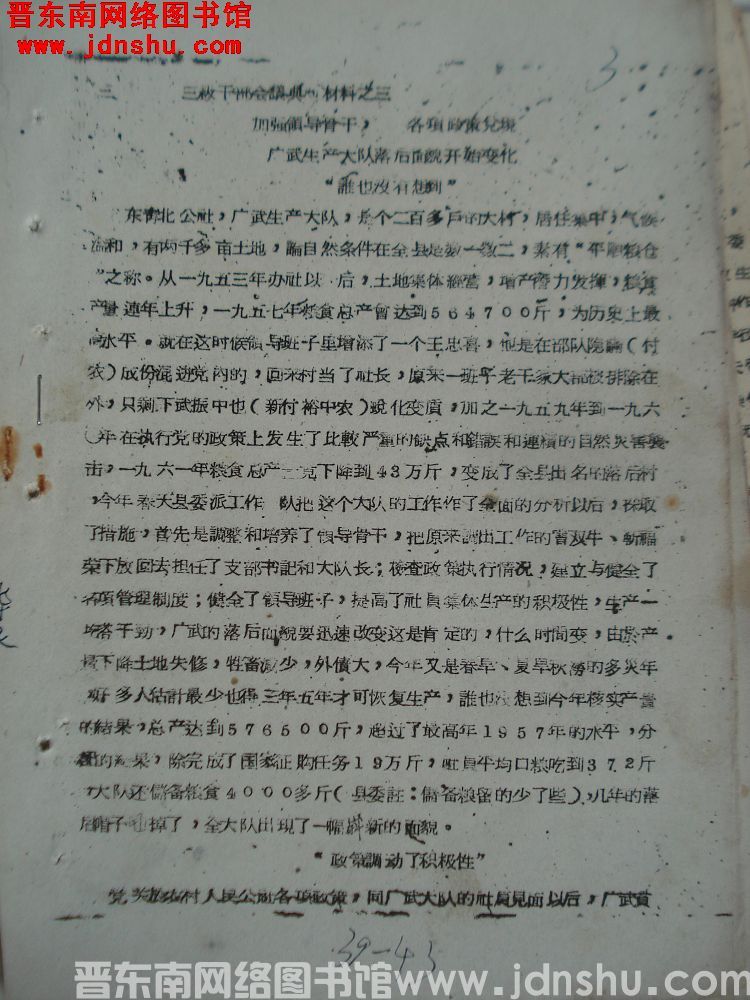 晋东南网络图书馆
www.jdnshu.com
3
三 三级干部会议典 材料之三
加强領导骨干， 各項政策兌現
广武生产大队落后面貌开始变化
“誰也沒有想到”
东 北公社，广武生产大队，是个二百多戶的大村，居住集中，气候
溫和，有两千多亩土地，論自然条件在全县是数一数二，素有“ 粮仓
”之称。从一九五三年办社以 后，土地集体經营，增产潛力发揮，粮食
产量連年上升，一九五七年粮食总产曾达到５６４７００斤，为历史上最
高水平。就在这时候領导班子里增添了一个王忠喜，他是在部队隐瞞（付
农）成份混进党內的，回来村当了社长，原来一班 老干家大部被排除在
外，只剩下武振中也（新付裕中农）蛻化变质，加之一九五九年到一九六
〇年在执行党的政策上发生了比較严重的缺点和錯誤和連續的自然災害襲
击，一九六一年粮食总产 竟下降到４３万斤，变成了全县出名的落后村
，今年春天县委派工作 队把这个大队的工作作了全面的分析以后，採取
了措施，首先是調整和培养了領导骨干，把原来調出工作的 双牛、 福
荣下放回去担任了支部书記和大队长；檢查政策执行情况，建立与健全了
各項管理制度；健全了領导班子，提高了社員集体生产的积极性，生产一
干勁，广武的落后面貌要迅速改变这是肯定的，什么时間变，由於产
量下降土地失修，牲畜減少，外債大，今年又是春旱、夏旱秋澇的多災年
好多人估計最少也得三年五年才可恢复生产，誰也沒想到今年核实产量
的結果，总产达到５７６５００斤，超过了最高年１９５７年的水平，分
配的結果，除完成了国家征购任务１９万斤，社員平均口粮吃到３７２斤
，大队还儲备粮食４０００多斤（县委註：儲备粮留的少了些），几年的落
后帽子 掉了，全大队出現了一幅嶄新的面貌。
“政策調动了积极性”
党关於农村人民公社各項政策，同广武大队的社員見面以后，广武貧
39-43
晋东南网络图书馆 www.jdnshu.com